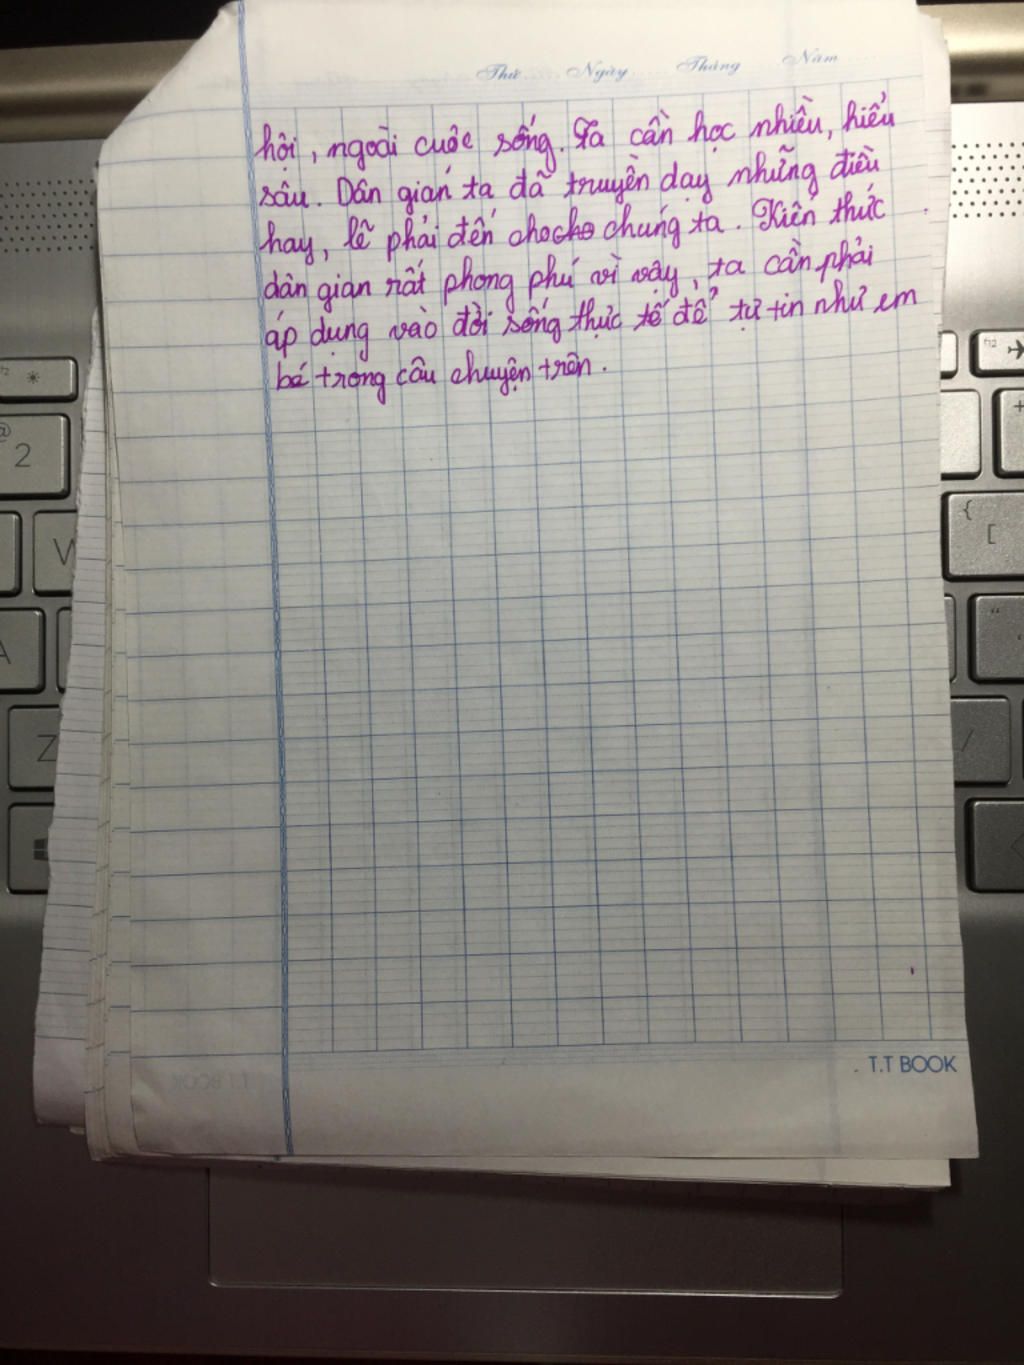 Thứ Ngày Tháng Năm
hội, ngoài cuộc sống. Ta cần học nhiều, hiểu
sâu. Dân gian ta đã truyền dạy những điều
hay, lẽ phải đến chocho chúng ta. Kiến thức
dân gian rất phong phú vì vậy, ta cần phải
áp dụng vào đời sống thực tế để tự tin như em
bé trong câu chuyện trên.
T.T BOOK
f12
f12
@
2
W
A
Z
+
{
[
"
/